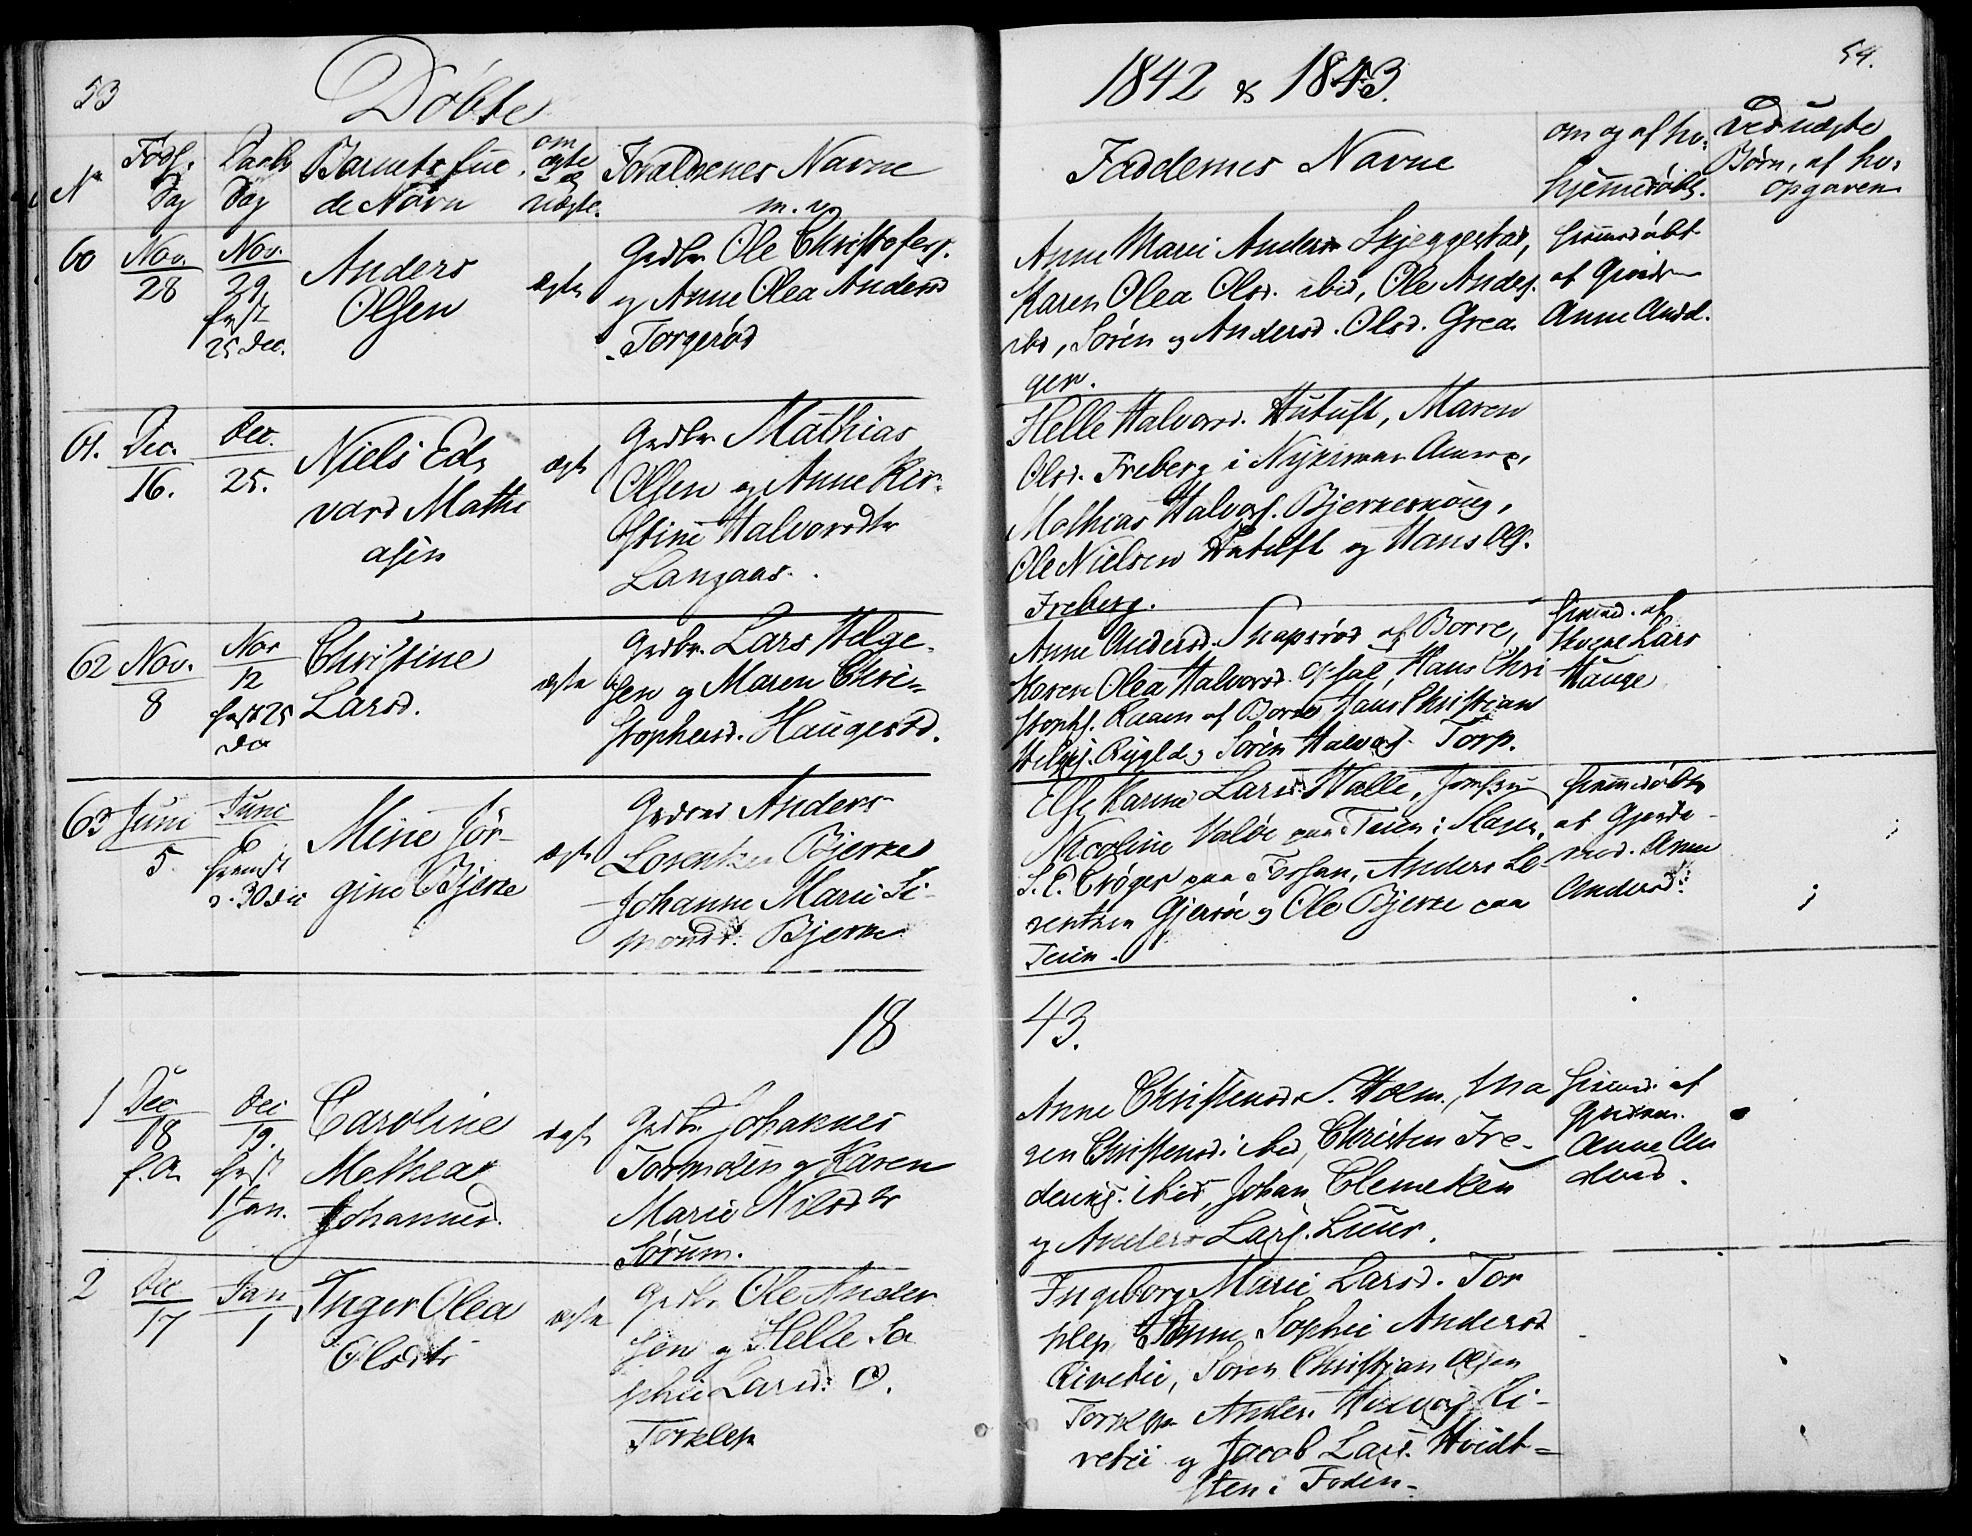 53
Døbte
1842 & 1843.
54.
No
Føds.
Dag
Daabs
Dag
Barnets fue
de Navn
om
ægte
el
uægte.
Forældrenes Navne
m. v.
Faddernes Navne
om og af hv.
hjemmedøbt.
Ved uægte
Børn, af hv.
opgaven
60
Nov.
28
Nov.
29
frst
25 Dec.
Anders
Olsen
ægte
Grdbr Ole Christofers.
og Anne Olea Andersd
Torgerød
Anne Marie Andersd Skjeggestad,
Karen Olea Olsd. ibid, Ole Anders.
ibd, Søren og Andersd. Olsd. Grea
ger.
hjemmedøbt
af
Anne Andd.
61.
Dec.
16.
Dec.
25.
Niels Ed
vard Mathi
asen
ægte
Grdbr Mathias
Olsen og Anne Kir
stine Halvorsdtr
Langaas.
Helle Halvorsd. Hutuft, Maren
Olsd. Freberg i Nykirke Annex,
Mathias Halvors.
Ole Nielsen Hutuft og Hans Ols.
Freberg.
62
Nov.
8
Nov
12
frst 25
Dec
Christine
Larsd.
ægte
Grdbr. Lars Helge
sen og Maren Chri
stophersd. Haugerød.
Anne Andersd. Snapsrød af Borre,
Karen Olea Halvorsd. Hans Chri
stophs. af Borre Hans Christian
Helgs. Rygh og Søren Halvors. Torp.
hjemmd. af
Lars
Hauge
63
Juni
5.
Juni
6
fremst
d. 30 Dec
Mine Jør
gine Bjerke
ægte
Anders
Lorentzen Bjerke
Johanne Marie Si
monsd. Bjerke
Else Karine Larsd. Walle, Jomfru
Nicoline Valøe paa Teien i Slagen,
S. E. Crøger paa Fossan, Anders Lo
rentzen Gjersøe og Ole Bjerke paa
Teien.
hjemmedøbt
af Gjorde
mod. Anne
Andersd.
18
43.
1
Dec
18
f. A.
Dec
19.
frst
1 Jan.
Caroline
Mathea
Johannesd.
ægte
Grdbr. Johannes
og Karen
Marie Nilsdtr
Sørum.
Anne Christensd. S. Holm, Ma
ren Christensd. ibid, Christen Fre
deriks. ibid, Johan Clemetsen
og Anders Lars. Luus.
hjemmd. af
Anne An
dersd.
2
Dec
17
Jan
1
Inger Olea
Olsdtr
ægte
Grdbr Ole Ander
sen og Helle So
phie Larsd. Ø.
Torklep
Ingeborg Marie Larsd. Tor
klep, Anne Sophie Andersd
Rivetei, Søren Christian Olsen
Torklep Anders Halvors Ri
vetei og Jacob Lars. Hvidt
sten i Foden.